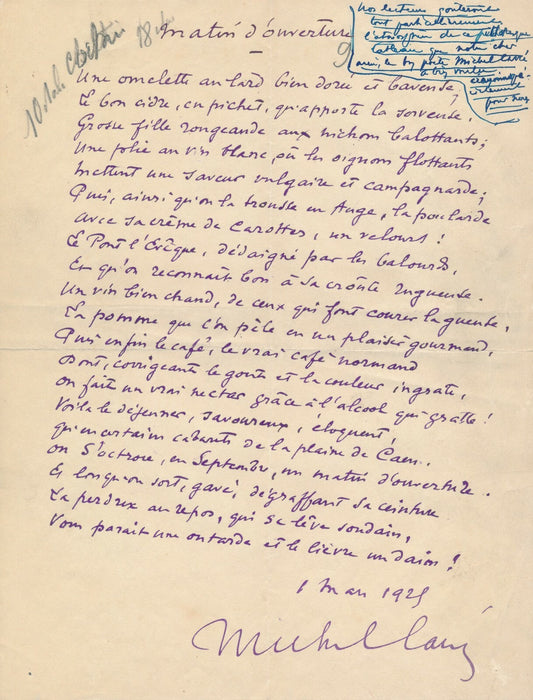 Matin d'ouverture
Nos lecteurs goûteront
tout particulièrement
l'atmosphère de ce pittoresque
tableau que notre cher
ami, le bon poète Michel Carré
a bien voulu
pour nous
Une omelette au lard bien dorée et baveuse,
Le bon cidre, en pichet, qu'apporte la serveuse,
Grosse fille rougeaude aux nichons balottants ;
Une folie au vin blanc, où les oignons flottants
Mettent une saveur vulgaire et campagnarde ;
Puis, ainsi qu'on la trousse en Auge, la poularde
Avec sa crème de Carottes, un velours !
Le Pont l'Evêque, dédaigné par les balourds,
Et qu'on reconnait bon à sa croûte rugueuse.
Un vin bien chaud, de ceux qui font courer la gueuse,
La pomme que l'on pèle en un plaisir gourmand,
Puis enfin le café, le vrai café normand
Dont, corrigeant le goût et la couleur ingrate,
On fait un vrai nectar grâce à l'alcool qui gratte !
Voilà le déjeuner, savoureux, éloquent,
qu'en certains cabarets de la plaine de Caen.
On s'octroie, en Septembre, un matin d'ouverture.
Et lorsqu'on sort, gavé, dégraffant sa ceinture
La perdrix au repos, qui se lève soudain,
Vous parait une outarde et le lièvre un daim !
1 Mars 1925
Michel Carré